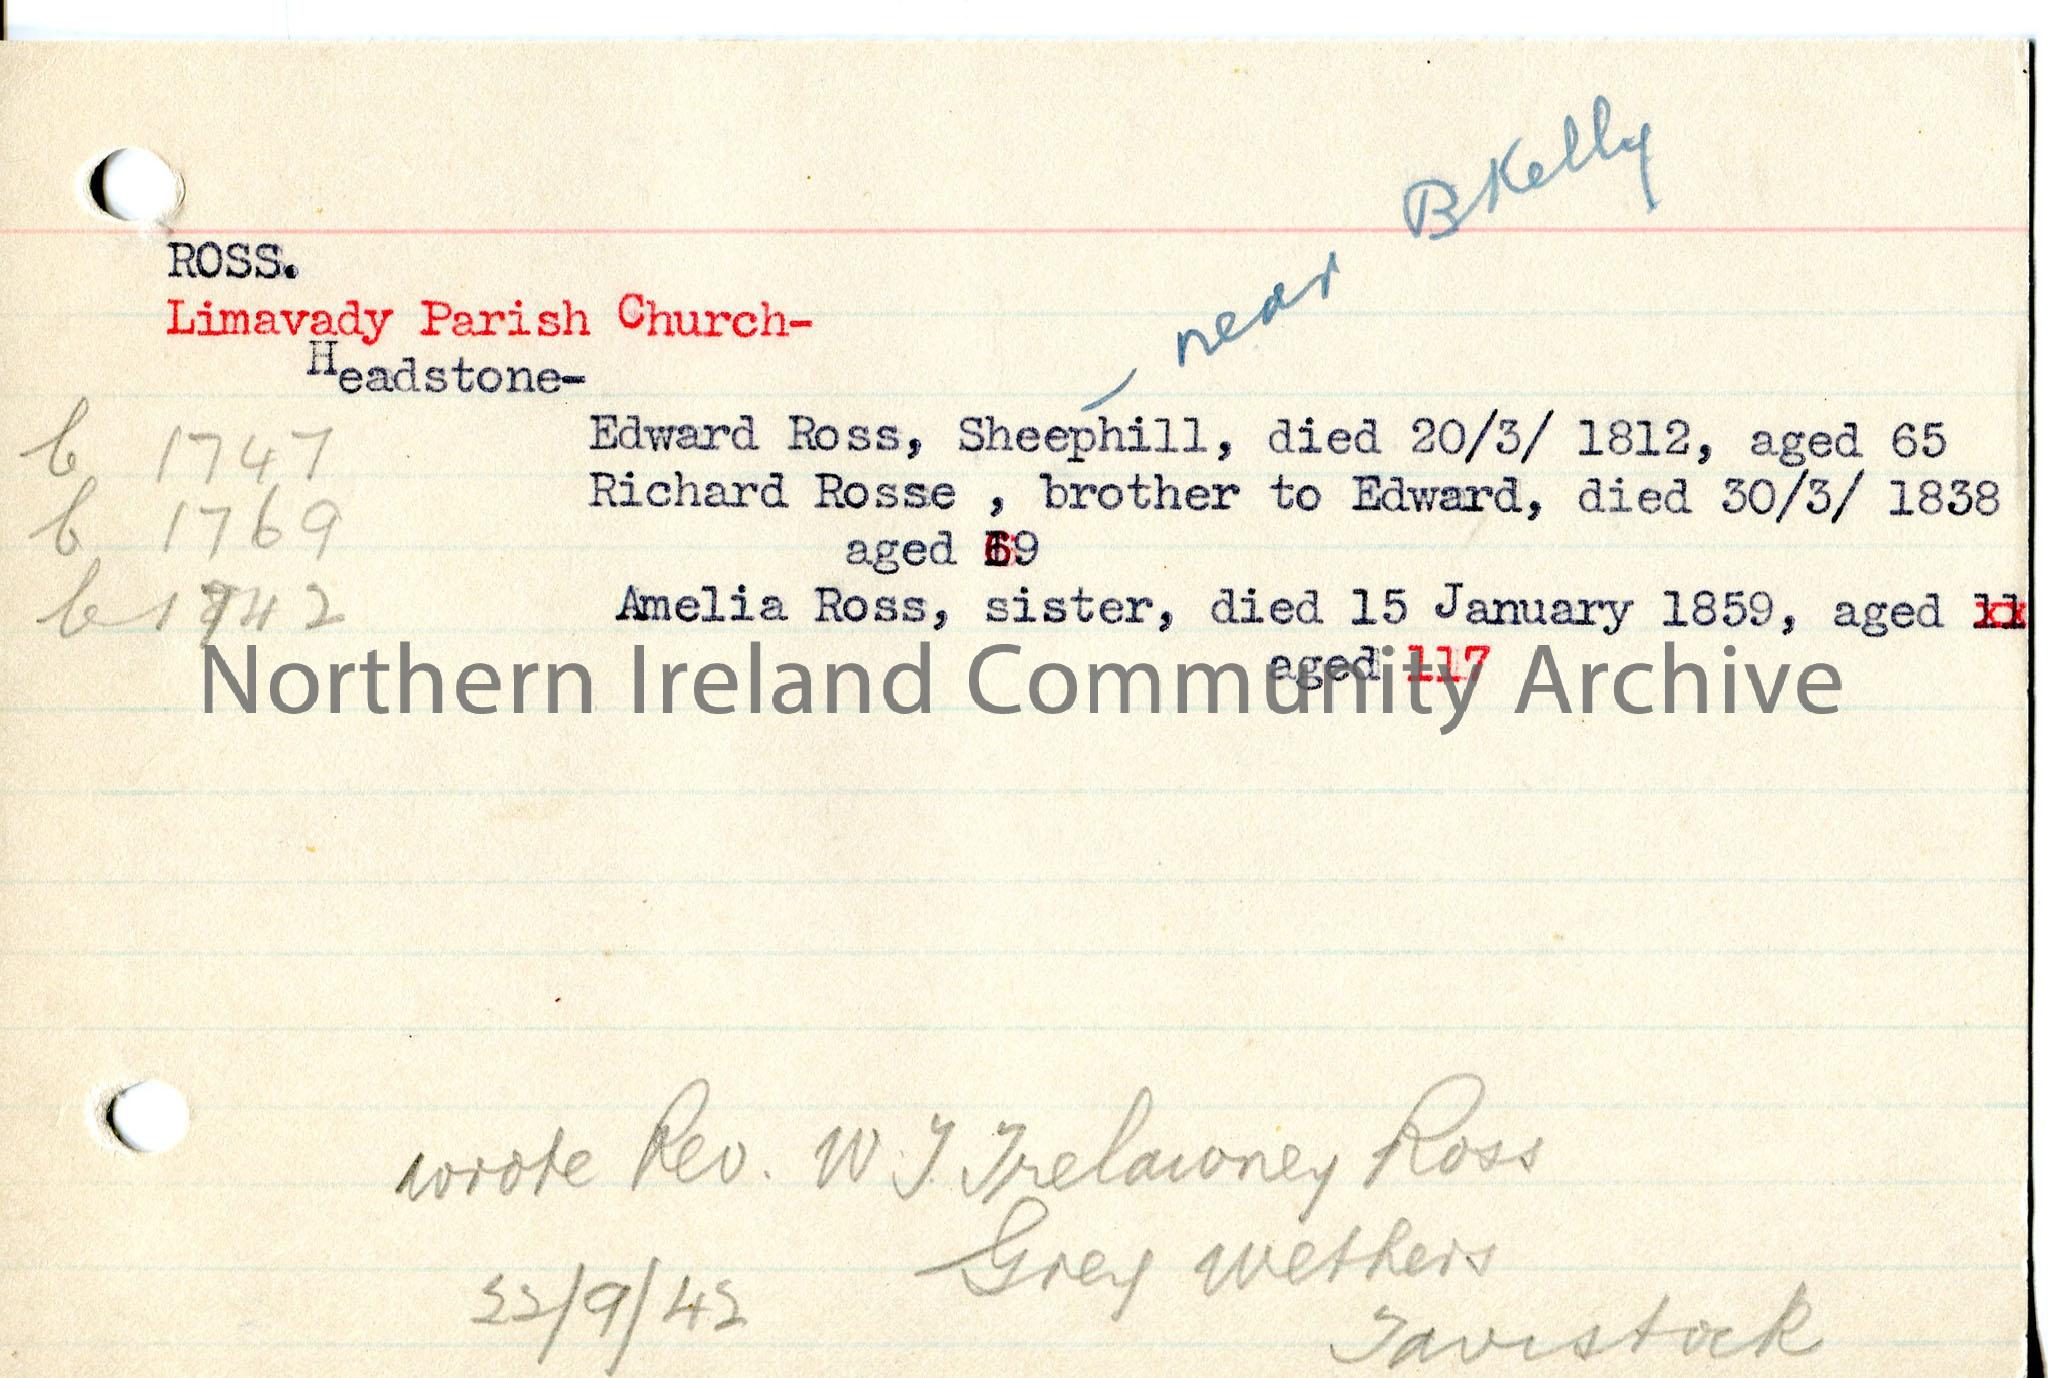 near B Kelly
ROSS.
Limavady Parish Church-
Headstone-
b 1747 Edward Ross, Sheephill, died 20/3/ 1812, aged 65
b 1769 Richard Rosse , brother to Edward, died 30/3/ 1838
aged 69
b 1742 Amelia Ross, sister, died 15 January 1859, aged
aged 117
Northern Ireland Community Archive
wrote Rev. W. J. Trelawney Ross
Grey Wethers
22/9/42
Tavistock